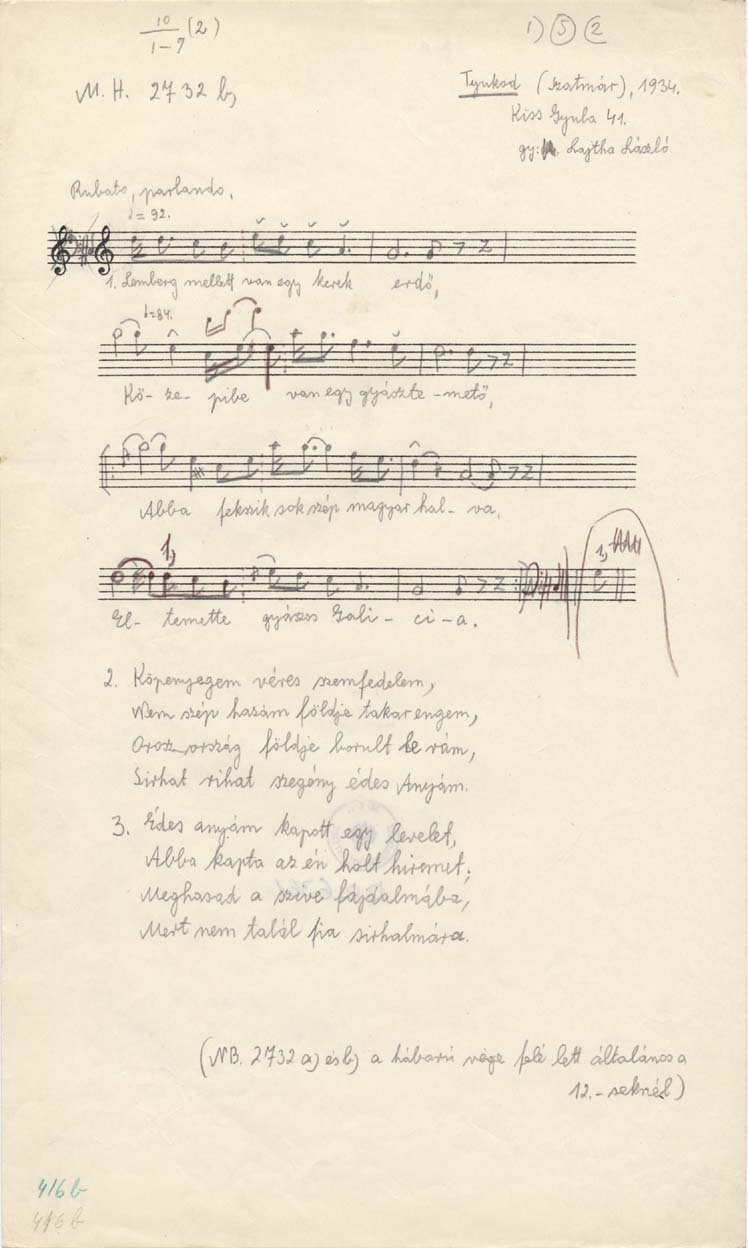 10/1-7 (2)
1) 5 2
M. H. 2732 b)
Tyukod (Szatmár), 1934.
Kiss Gyula 41.
gy: Lajtha László
Rubato, parlando.
♩= 92.
1. Lemberg mellett van egy kerek erdő,
♩=84.
Kö- ze- pibe van egy gyászte-mető,
Abba fekszik sok szép magyar hal- va,
1,)
1,)
El- temette gyászos Gali- ci-a.
2. Köpenyegem véres szemfedelem,
Nem szép hazám földje takar engem,
Oroszország földje borult le rám,
Sirhat rihat szegény édes Anyám.
3. Édes anyám kapott egy levelet,
Abba kapta az én holt hiremet.
Meghasad a szive fájdalmába,
Mert nem talál fia sirhalmára.
(NB. 2732 a) és b) a háború vége felé lett általános a
12.-seknél)
416 b
416 b